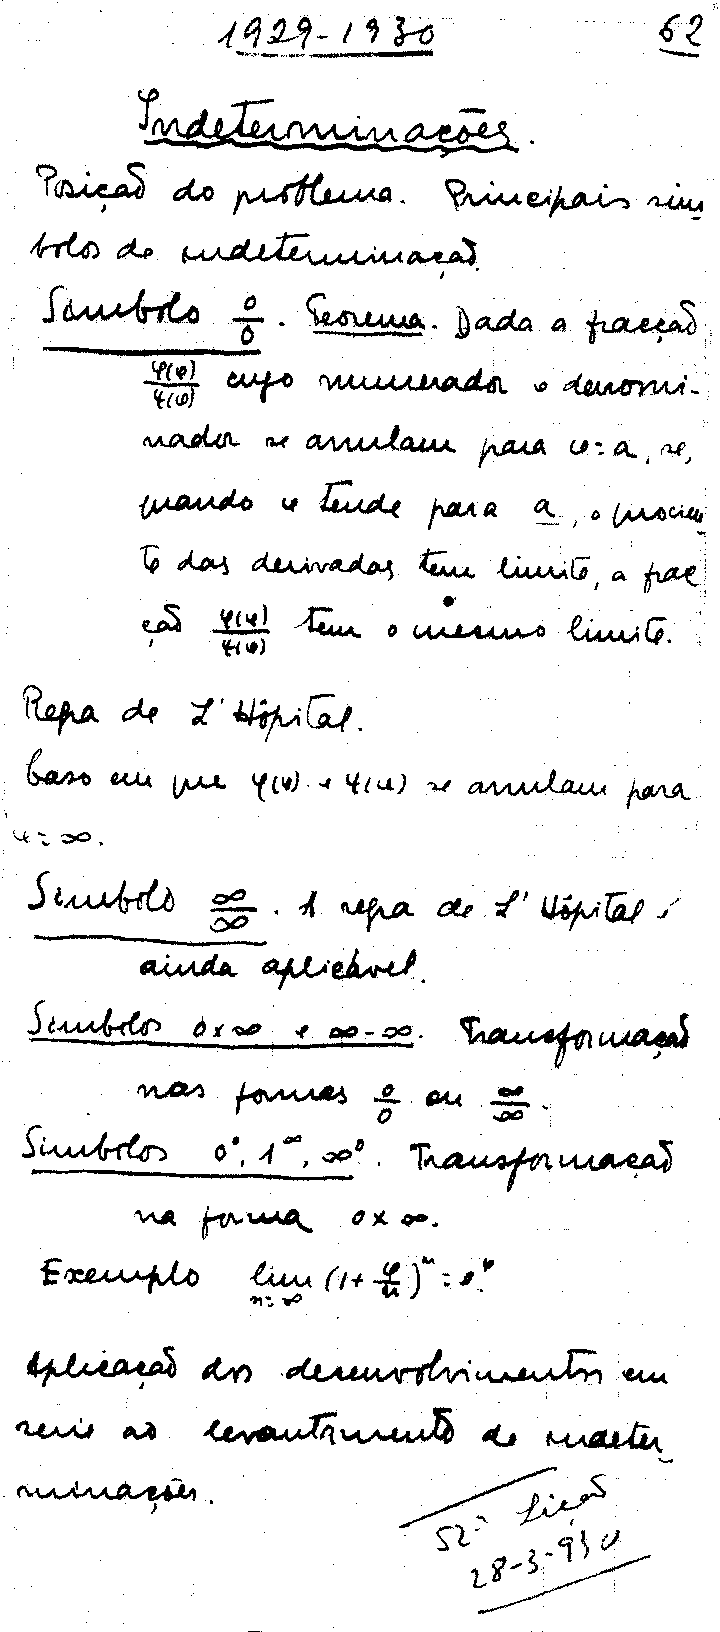 1929-1930 62
Indeterminações.
Posição do problema. Principais sim-
bolos de indeterminação.
Simbolo 0/0. Teorema. Dada a fracção
φ(x)/ψ(x) cujo numerador e denomi-
nador se anulam para x=a, se,
quando x tende para a, o quocien-
te das derivadas tem limite, a frac
ção φ(x)/ψ(x) tem o mesmo limite.
Regra de L'Hôpital.
Caso em que φ(x) e ψ(x) se anulam para
x=∞.
Simbolo ∞/∞. A regra de L'Hôpital é
ainda aplicável.
Simbolos 0×∞ e ∞-∞. Transformação
nas formas 0/0 ou ∞/∞.
Simbolos 0⁰, 1^∞, ∞⁰. Transformação
na forma 0×∞.
Exemplo lim n=∞ (1+x/n)^n = e^x.
Aplicação dos desenvolvimentos em
serie ao levantamento de indeter-
minações.
52ª Lição
28-3-930